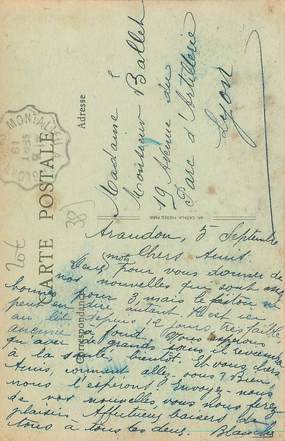 CARTE POSTALE
Adresse
Correspondance
MONTALIEU
Madame &
Monsieur Ballet
19 Avenue du
Parc d'Artillerie
Lyon
38
20f
Arandon, 5 Septembre
Chers Amis
mots pour vous donner de
nos nouvelles qui sont
bonnes pour 3, mais le
peut en dire autant
au lit depuis 6 jours très faible
Nous espérons
qu'avec de grands soins il reviendra
à la santé bientôt. Et vous chers
Amis, comment allez-vous? Bien
nous l'esperons. Envoyez-nous
de vos nouvelles vous nous ferez
plaisir. Affectueux baisers de
tous à tous les deux. Blanche